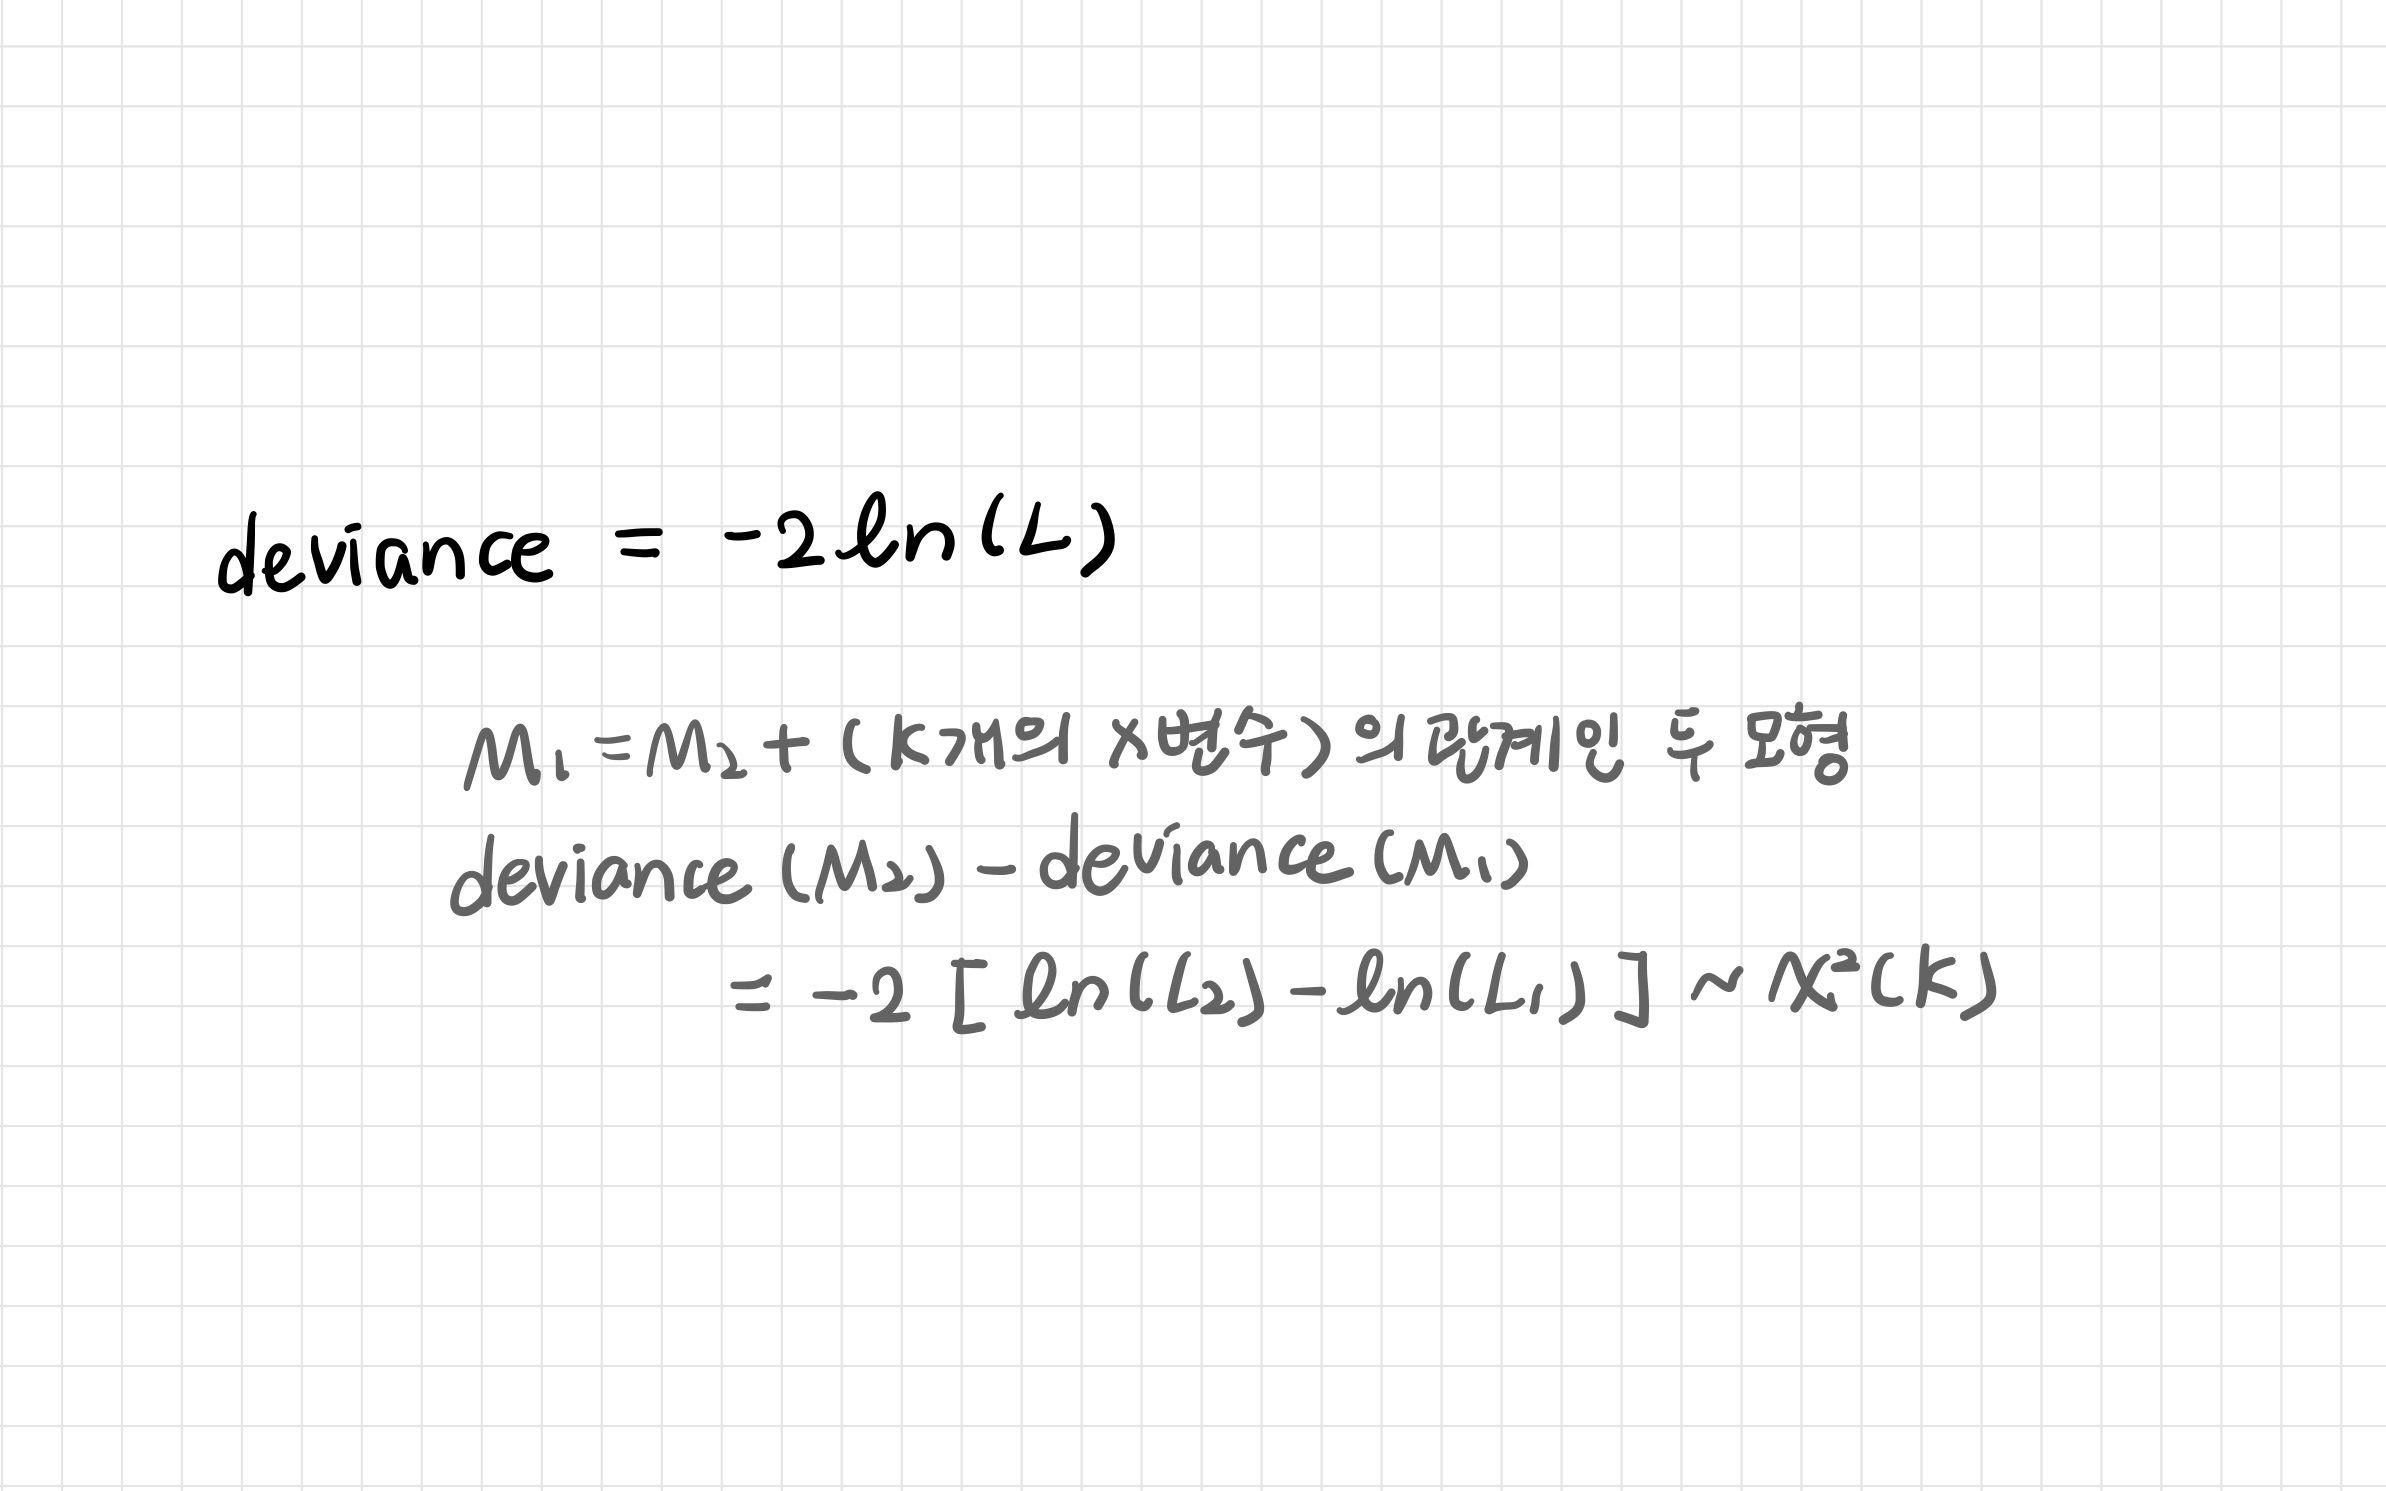 deviance = -2 ln(L)
M₁ = M₂ + (k개의 X변수) 의 관계인 두 모형
deviance (M₂) - deviance (M₁)
= -2 [ ln(L₂) - ln(L₁) ] ~ χ²(k)